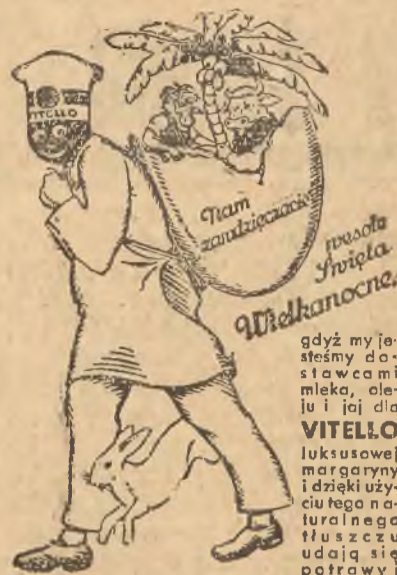 VITELLO
Nam
zawdzięczacie
wesołe
Święta
Wielkanocne,
gdyż my je-
steśmy do-
stawcami
mleka, ole-
ju i jaj dla
VITELLO
luksusowej
margaryny
i dzięki uży-
ciu tego na-
turalnego
tłuszczu
udają się
potrawy i